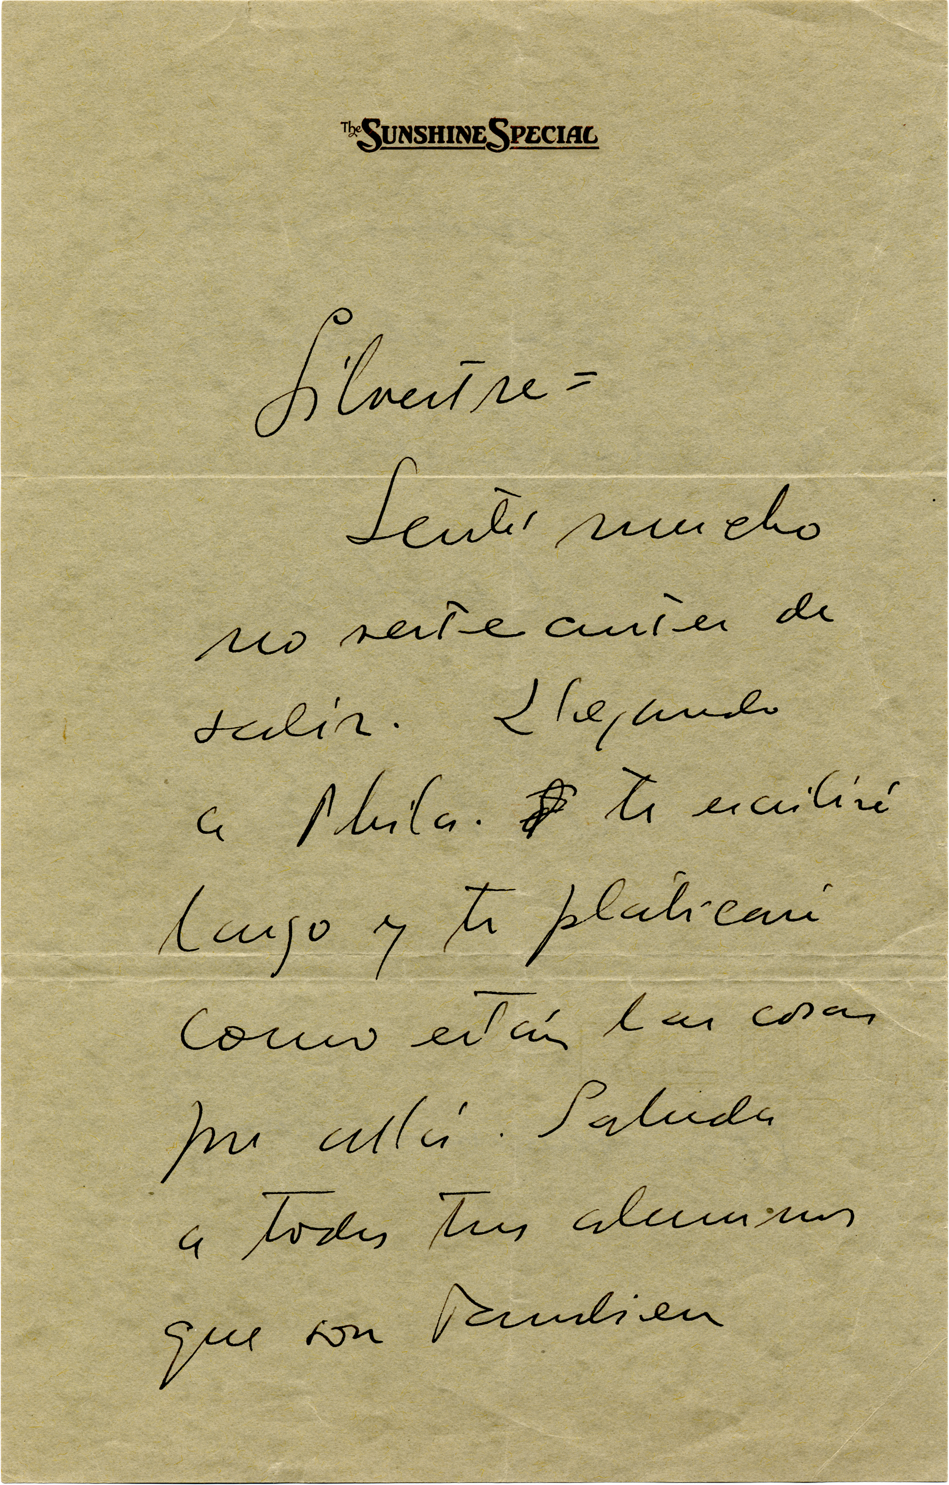 The SUNSHINE SPECIAL
Silvestre =
Sentí mucho
no verte antes de
salir. Llegando
a Phila. te escribiré
largo y te platicaré
como están las cosas
por allá. Saluda
a todos tus alumnos
que son tambien